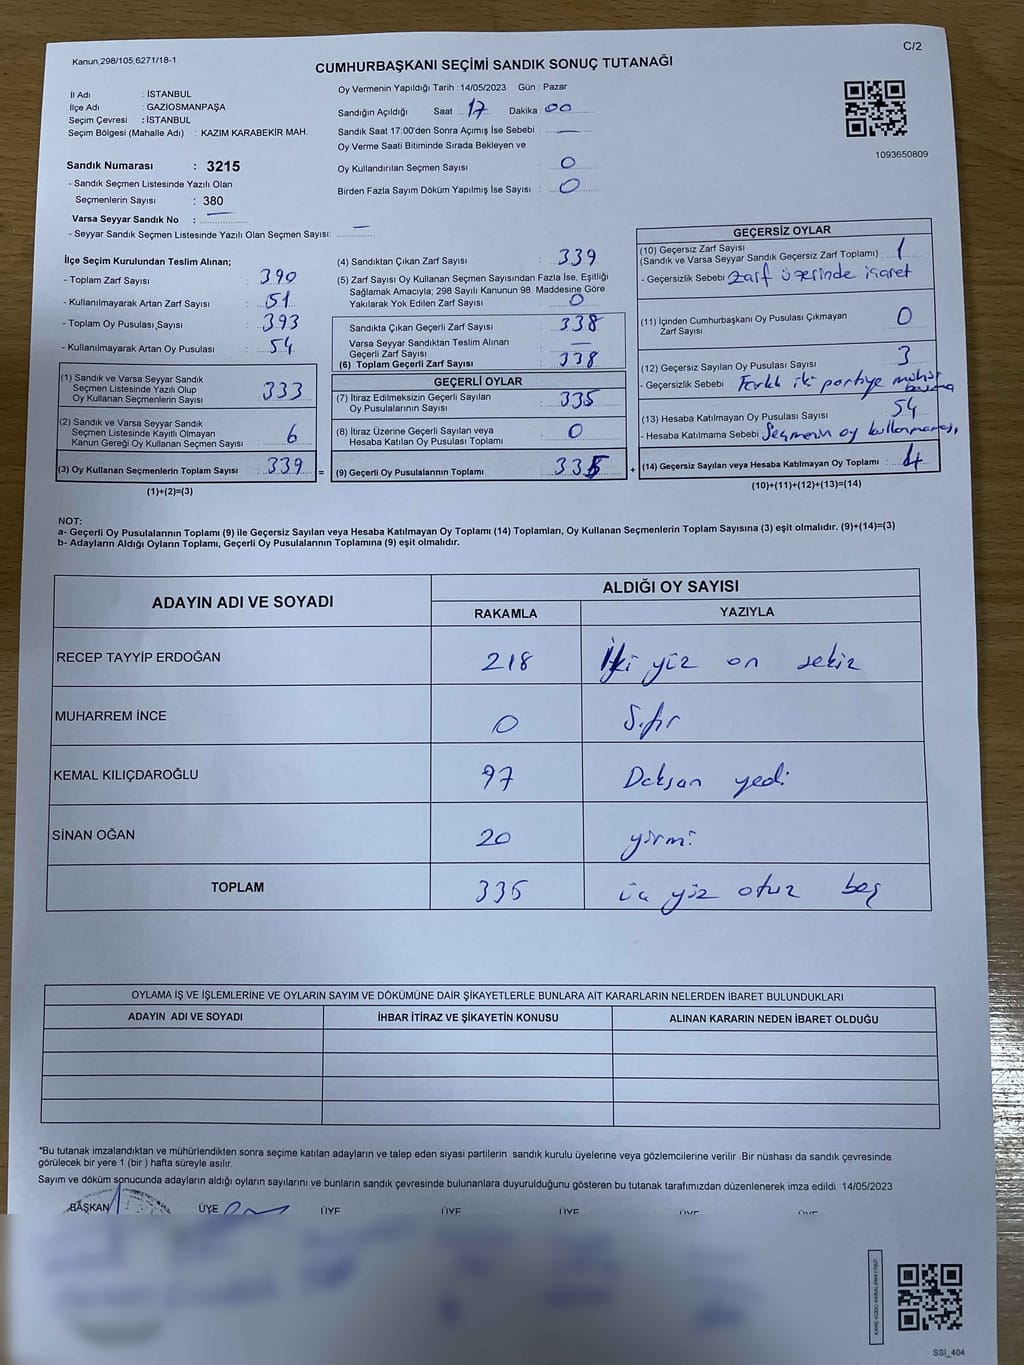 Kanun,298/105,6271/18-1
C/2
CUMHURBAŞKANI SEÇİMİ SANDIK SONUÇ TUTANAĞI
İl Adı : İSTANBUL
İlçe Adı : GAZİOSMANPAŞA
Seçim Çevresi : İSTANBUL
Seçim Bölgesi (Mahalle Adı) : KAZIM KARABEKİR MAH.
Sandık Numarası : 3215
- Sandık Seçmen Listesinde Yazılı Olan
Seçmenlerin Sayısı : 380
Varsa Seyyar Sandık No : —
- Seyyar Sandık Seçmen Listesinde Yazılı Olan Seçmen Sayısı: —
Oy Vermenin Yapıldığı Tarih : 14/05/2023 Gün : Pazar
Sandığın Açıldığı Saat : 17 Dakika : 00
Sandık Saat 17:00'den Sonra Açımış İse Sebebi : —
Oy Verme Saati Bitiminde Sırada Bekleyen ve
Oy Kullandırılan Seçmen Sayısı : 0
Birden Fazla Sayım Döküm Yapılmış İse Sayısı : 0
1093650809
İlçe Seçim Kurulundan Teslim Alınan;
- Toplam Zarf Sayısı : 390
- Kullanılmayarak Artan Zarf Sayısı : 51
- Toplam Oy Pusulası Sayısı : 393
- Kullanılmayarak Artan Oy Pusulası : 54
(1) Sandık ve Varsa Seyyar Sandık
Seçmen Listesinde Yazılı Olup
Oy Kullanan Seçmenlerin Sayısı : 333
(2) Sandık ve Varsa Seyyar Sandık
Seçmen Listesinde Kayıtlı Olmayan
Kanun Gereği Oy Kullanan Seçmen Sayısı : 6
(3) Oy Kullanan Seçmenlerin Toplam Sayısı : 339
(1)+(2)=(3)
(4) Sandıktan Çıkan Zarf Sayısı : 339
(5) Zarf Sayısı Oy Kullanan Seçmen Sayısından Fazla İse, Eşitliği
Sağlamak Amacıyla; 298 Sayılı Kanunun 98. Maddesine Göre
Yakılarak Yok Edilen Zarf Sayısı : 0
Sandıkta Çıkan Geçerli Zarf Sayısı : 338
Varsa Seyyar Sandıktan Teslim Alınan
Geçerli Zarf Sayısı : —
(6) Toplam Geçerli Zarf Sayısı : 338
GEÇERLİ OYLAR
(7) İtiraz Edilmeksizin Geçerli Sayılan
Oy Pusulalarının Sayısı : 335
(8) İtiraz Üzerine Geçerli Sayılan veya
Hesaba Katılan Oy Pusulası Toplamı : 0
= (9) Geçerli Oy Pusulalarının Toplamı : 335
GEÇERSİZ OYLAR
(10) Geçersiz Zarf Sayısı
(Sandık ve Varsa Seyyar Sandık Geçersiz Zarf Toplamı) : 1
- Geçersizlik Sebebi : zarf üzerinde işaret
(11) İçinden Cumhurbaşkanı Oy Pusulası Çıkmayan
Zarf Sayısı : 0
(12) Geçersiz Sayılan Oy Pusulası Sayısı : 3
- Geçersizlik Sebebi : Farklı iki partiye mühür basma
(13) Hesaba Katılmayan Oy Pusulası Sayısı : 54
- Hesaba Katılmama Sebebi : Seçmenin oy kullanmaması
+ (14) Geçersiz Sayılan veya Hesaba Katılmayan Oy Toplamı : 4
(10)+(11)+(12)+(13)=(14)
NOT:
a- Geçerli Oy Pusulalarının Toplamı (9) ile Geçersiz Sayılan veya Hesaba Katılmayan Oy Toplamı (14) Toplamları, Oy Kullanan Seçmenlerin Toplam Sayısına (3) eşit olmalıdır. (9)+(14)=(3)
b- Adayların Aldığı Oyların Toplamı, Geçerli Oy Pusulalarının Toplamına (9) eşit olmalıdır.
ADAYIN ADI VE SOYADI ALDIĞI OY SAYISI
RAKAMLA YAZIYLA
RECEP TAYYİP ERDOĞAN 218 İki yüz on sekiz
MUHARREM İNCE 0 Sıfır
KEMAL KILIÇDAROĞLU 97 Doksan yedi
SİNAN OĞAN 20 yirmi
TOPLAM 335 üç yüz otuz beş
OYLAMA İŞ VE İŞLEMLERİNE VE OYLARIN SAYIM VE DÖKÜMÜNE DAİR ŞİKAYETLERLE BUNLARA AİT KARARLARIN NELERDEN İBARET BULUNDUKLARI
ADAYIN ADI VE SOYADI İHBAR İTİRAZ VE ŞİKAYETİN KONUSU ALINAN KARARIN NEDEN İBARET OLDUĞU
*Bu tutanak imzalandıktan ve mühürlendikten sonra seçime katılan adayların ve talep eden siyasi partilerin sandık kurulu üyelerine veya gözlemcilerine verilir. Bir nüshası da sandık çevresinde
görülecek bir yere 1 (bir) hafta süreyle asılır.
Sayım ve döküm sonucunda adayların aldığı oyların sayılarını ve bunların sandık çevresinde bulunanlara duyurulduğunu gösteren bu tutanak tarafımızdan düzenlenerek imza edildi. 14/05/2023
BAŞKAN ÜYE ÜYE ÜYE ÜYE ÜYE ÜYE
SSI_404